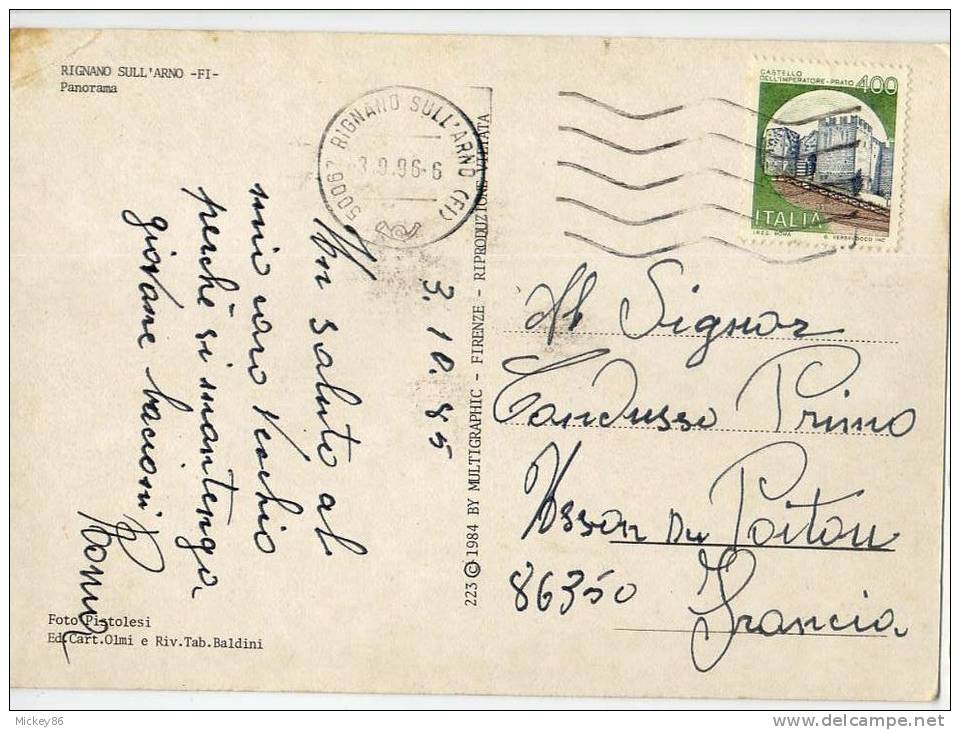 RIGNANO SULL'ARNO -FI-
Panorama
50067 RIGNANO SULL'ARNO (FI)
3.9.96-6
CASTELLO
DELL'IMPERATORE-PRATO 400
ITALIA
I.P.Z.S. ROMA
3.10.85
Un saluto al
mio caro Vechio
perchè si mantenga
giovane bacioni
223 © 1984 BY MULTIGRAPHIC - FIRENZE - RIPRODUZIONE VIETATA
Al Signor
Candusso Primo
Usson Du Poitou
86350
Francia
Foto Pistolesi
Ed.Cart.Olmi e Riv.Tab.Baldini
Mickey86
www.delcampe.net